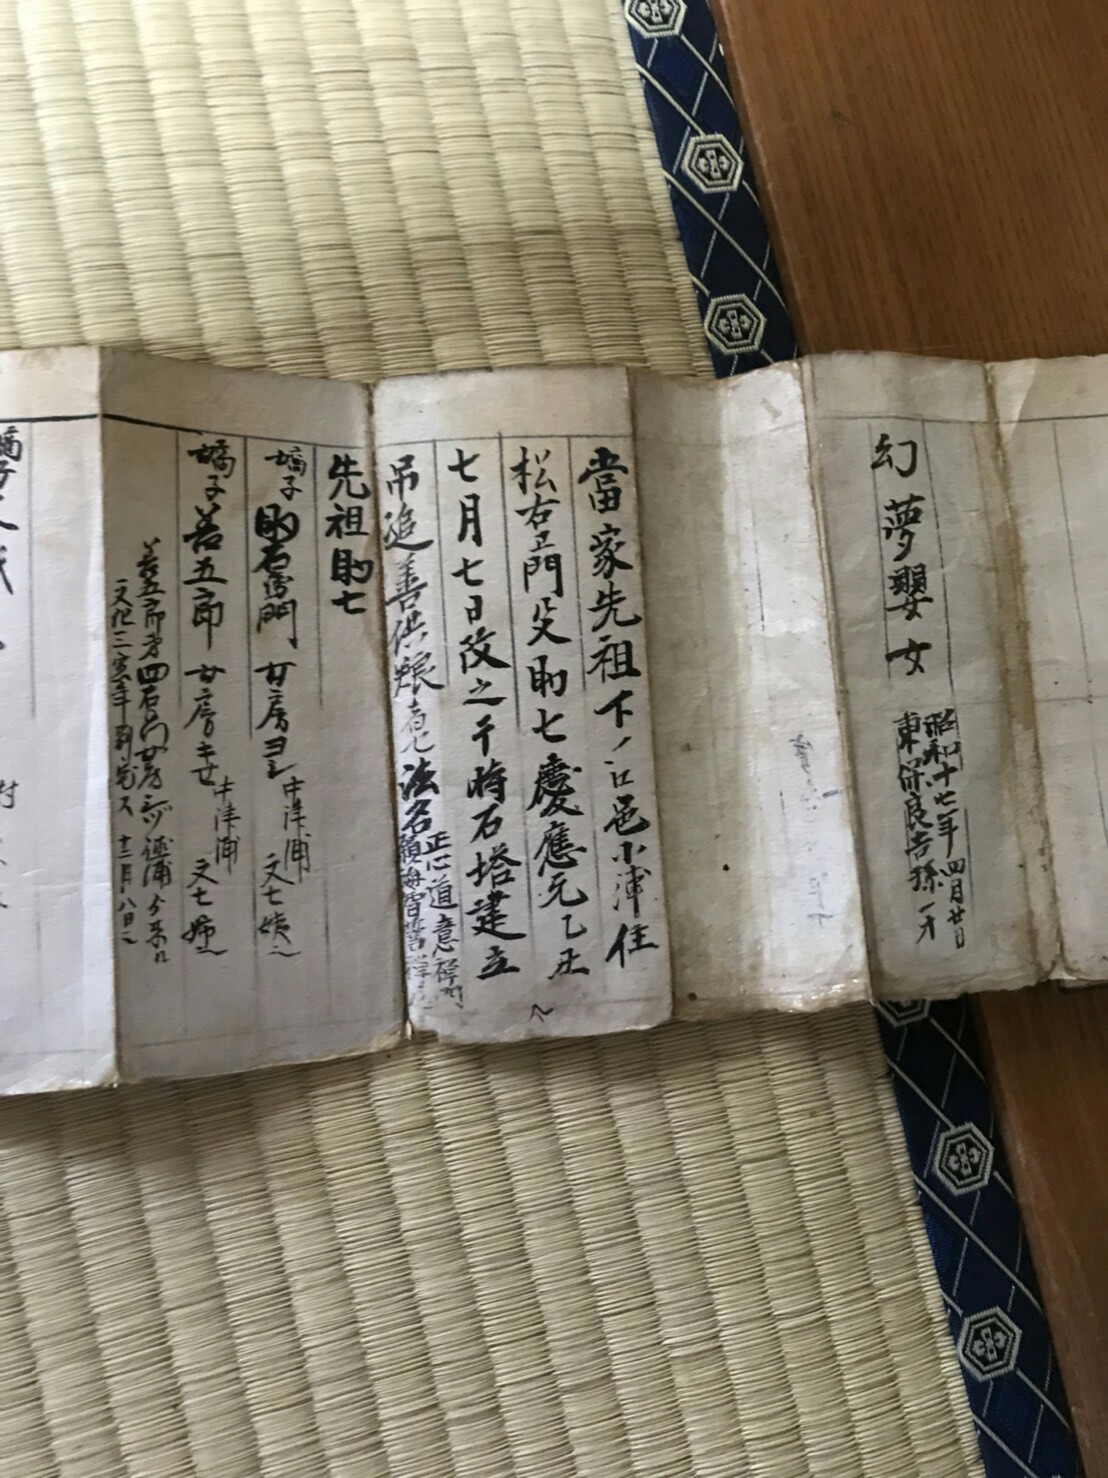 幻夢嬰女
昭和十七年四月廿日
東保良吉孫一才
當家先祖下ノ江邑小浦住
松右卫門父助七慶應元乙丑
七月七日改之干時石塔建立
吊追善供糧者也法名
正心道意禅門
願海智誓禅尼
先祖助七
嫡子助右衛門女房ヨシ
中津浦
文七姨也
嫡子善五郎女房キセ
中津浦
文七姉也
善五郎弟四右衛門女房
文化三寅年 十二月八日
嫡子
村